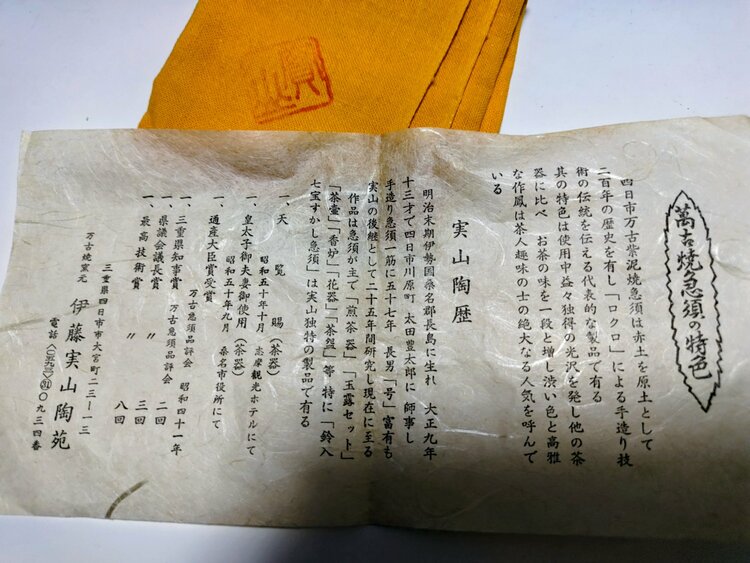 萬古焼急須の特色
四日市万古紫泥焼急須は赤土を原土として
二百年の歴史を有し「ロクロ」による手造り技
術の伝統を伝える代表的な製品で有る
其の特色は使用中益々独得の光沢を発し他の茶
器に比べ お茶の味を一段と増し渋い色と高雅
な作鳳は茶人趣味の士の絶大なる人気を呼んで
いる
実山陶歴
明治末期伊勢国桑名郡長島に生れ 大正九年
十三才て四日市川原町 太田豊太郎に 師事し
手造り急須一筋に五十七年 長男「号」富有も
実山の後継として二十五年間研究し現在に至る
作品は急須が主で「煎茶器」「玉露セット」
「茶壷」「香炉」「花器」「茶銚」等 特に「鈴入
七宝すかし急須」は実山独特の製品で有る
一、天覧賜(茶器)
昭和五十年十月 志摩観光ホテルにて
一、皇太子御夫妻御使用(茶器)
昭和五十年九月 桑名市役所にて
一、通産大臣賞受賞
万古急須品評会 昭和四十一年
一、三重県知事賞 万古急須品評会 二回
一、県議会議長賞 〃 三回
一、最高技術賞 〃 八回
三重県四日市市大宮町二三―一三
万古焼窯元 伊藤実山陶苑
電話〈〇五九三〉㉛〇九三四番
実山